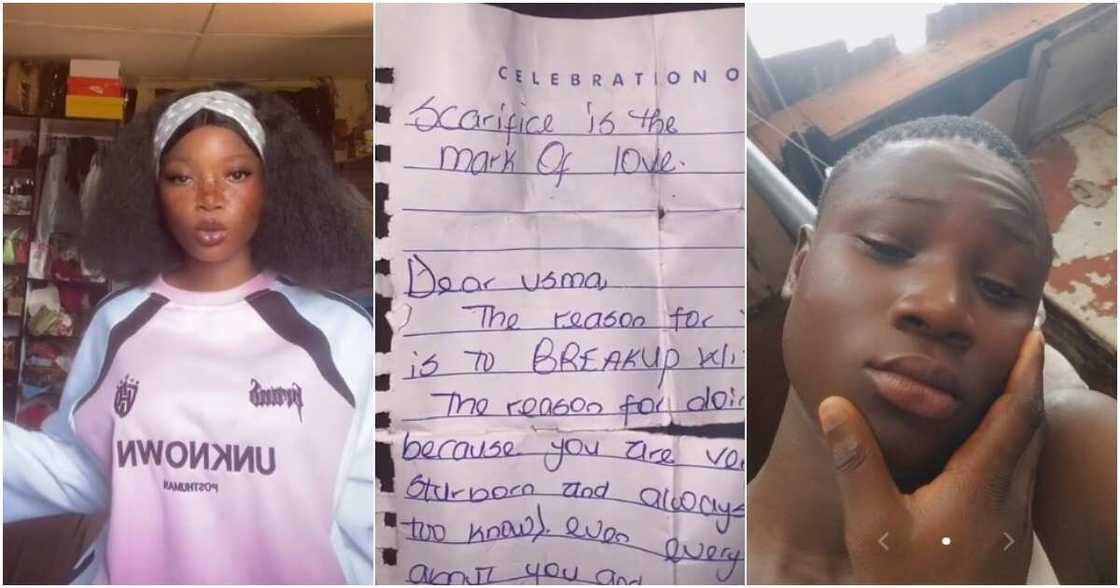 UNKNOWN
POSTHUMAN
CELEBRATION O
Scarifice is the
mark Of love.
Dear usma,
The reason for
is to BREAKUP
The reason for
because you are
Sturborn and always
too know). even every
about you and